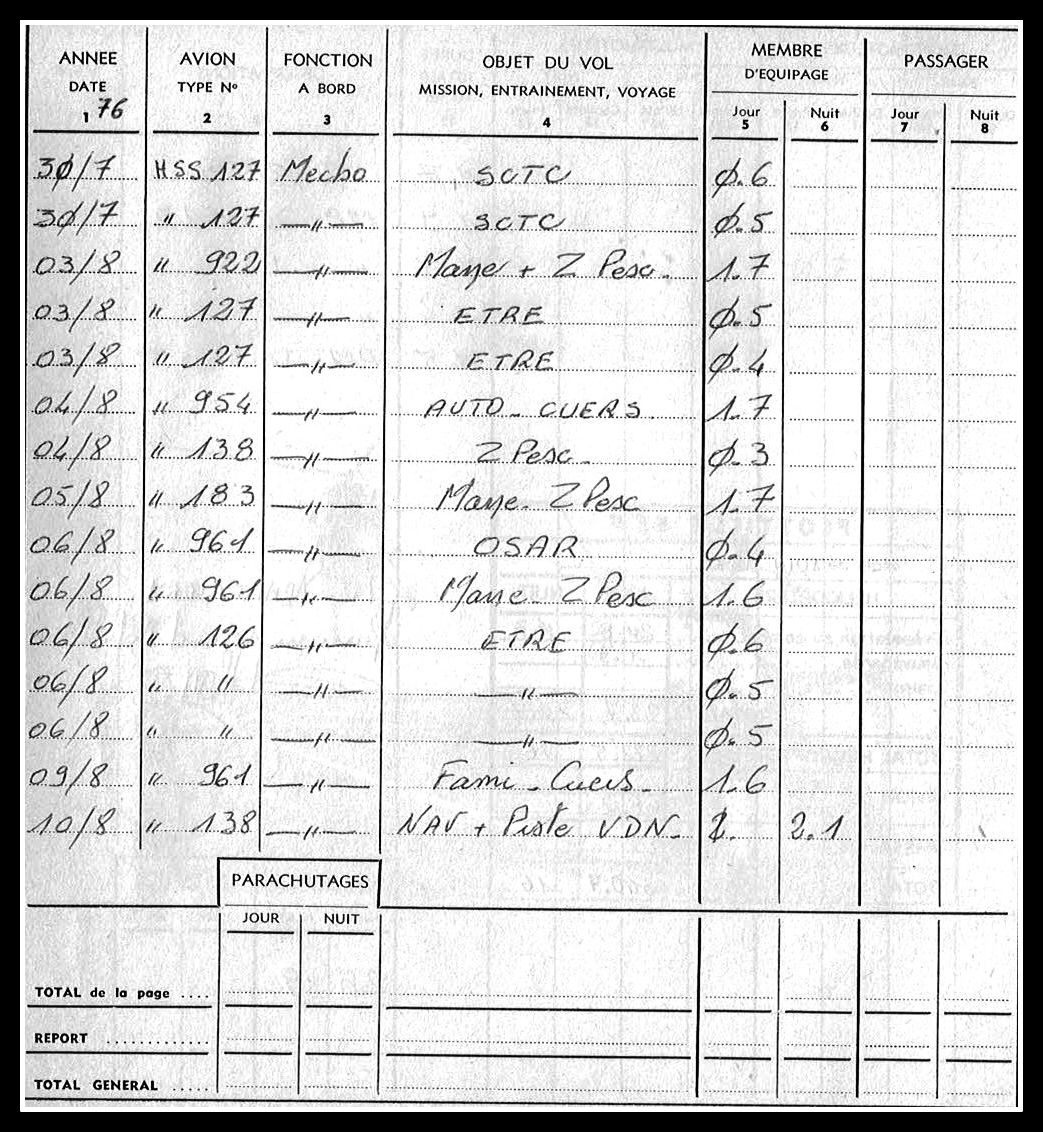 ANNEE AVION FONCTION OBJET DU VOL MEMBRE D'EQUIPAGE PASSAGER
DATE TYPE N° A BORD MISSION, ENTRAINEMENT, VOYAGE Jour Nuit Jour Nuit
1 76 2 3 4 5 6 7 8
3Ø/7 HSS 127 Mecbo SCTC Ø.6
3Ø/7 " 127 —"— SCTC Ø.5
03/8 " 922 —"— Mane + Z Pesc. 1.7
03/8 " 127 —"— ETRE Ø.5
03/8 " 127 —"— ETRE Ø.4
04/8 " 954 —"— AUTO - CUERS 1.7
04/8 " 138 —"— Z Pesc - Ø.3
05/8 " 183 —"— Mane - Z Pesc 1.7
06/8 " 961 —"— OSAR Ø.4
06/8 " 961 —"— Mane - Z Pesc 1.6
06/8 " 126 —"— ETRE Ø.6
06/8 " " —"— —"— Ø.5
06/8 " " —"— —"— Ø.5
09/8 " 961 —"— Fami - Cuers - 1.6
10/8 " 138 —"— NAV + Piste VDN - 2.1
PARACHUTAGES
JOUR NUIT
TOTAL de la page ....
REPORT .............
TOTAL GENERAL .....